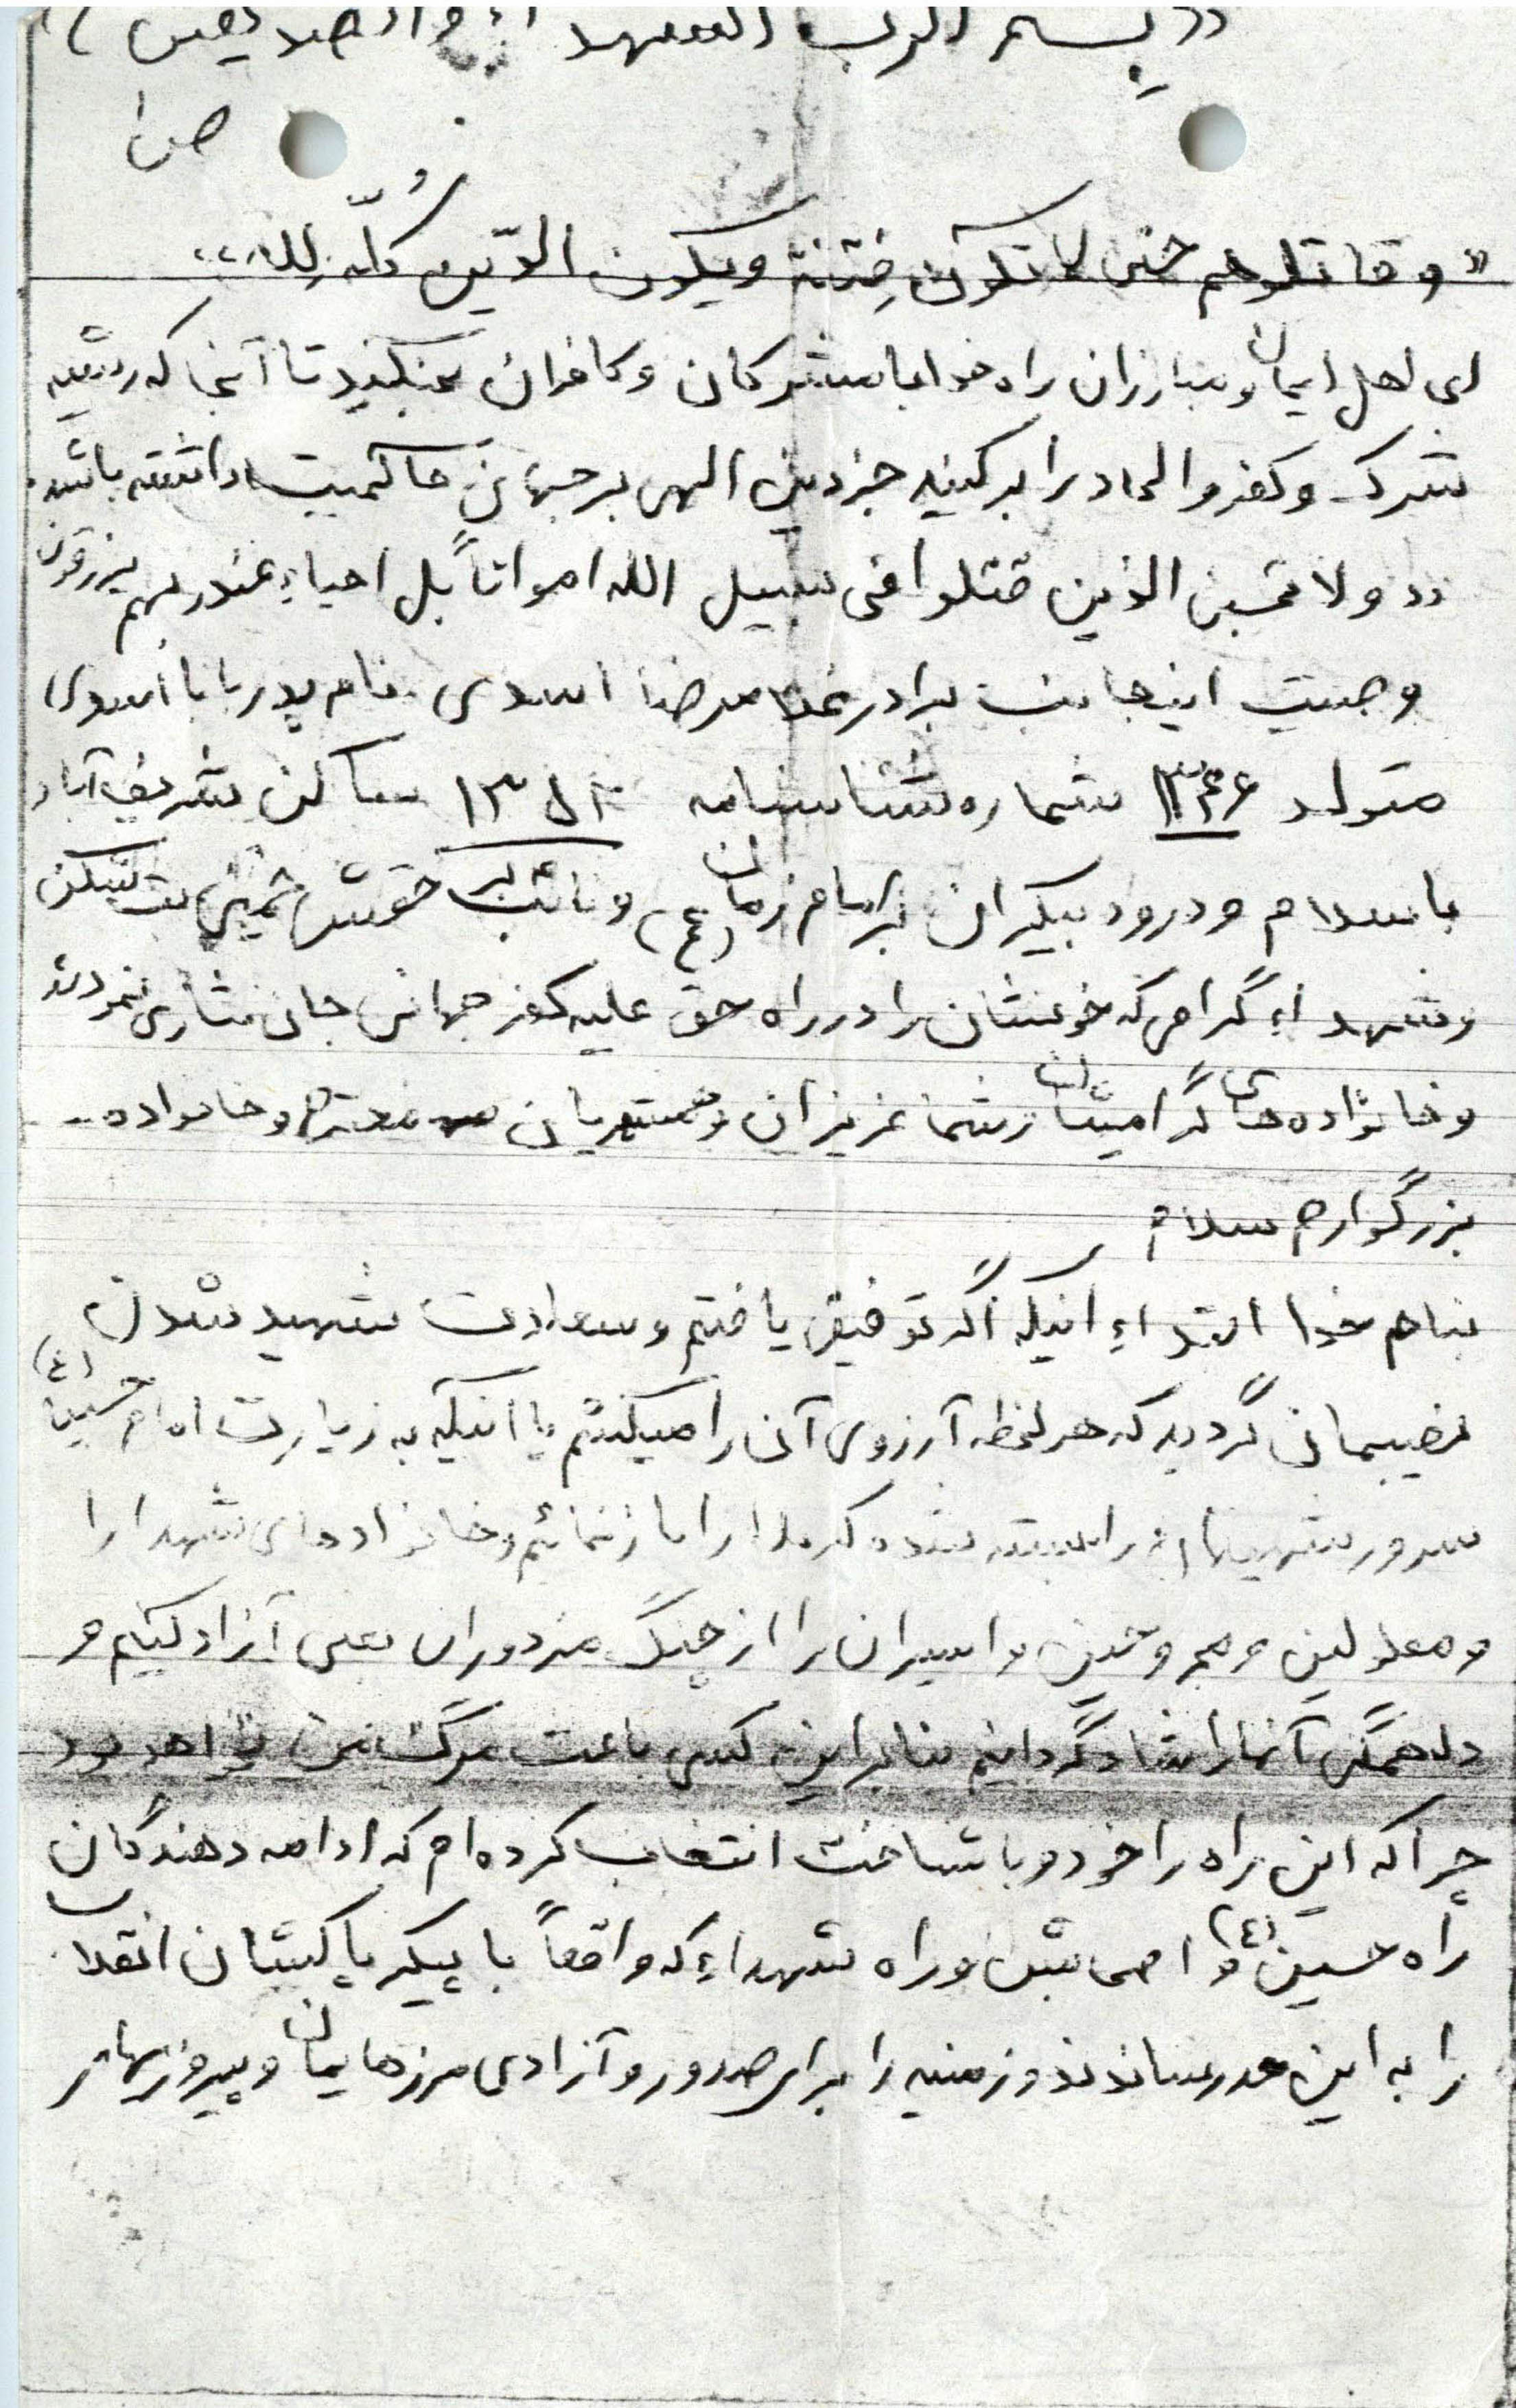 «بسم الرب الشهداء والصدیقین»
ص۱
«وقاتلوهم حتی لا تکون فِتنة ویکون الدّین کُلّه لِلله»
ای اهل ایمان و مبارزان راه خدا با مشرکان و کافران بجنگید تا آنجا که ریشه
شرک و کفر و الحاد را برکنید جز دین الهی بر جهان حاکمیت نداشته باشد.
«ولا تحسبن الذین قتلوا فی سبیل الله امواتاً بل احیاء عند ربهم یرزقون
وصیت اینجانب برادر غلامرضا اسدی نام پدر بابا اسدی
متولد ۱۳۴۶ شماره شناسنامه ساکن شریف آباد
با سلام و درود بیکران بر امام زمان (ع) و نائب بر حقش خمینی بت شکن
وشهداء گرامی که خونشان را در راه حق علیه کفر جهانی جان نثاری نمودند
و خانواده های گرامیشان و شما عزیزان و همشهریان محترم و خانواده --
بزرگوارم سلام
بنام خدا ابتداء اینکه اگر توفیق یافتم و سعادت شهید شدن
نصیبمان گردید که هر لحظه آرزوی آن را میکنم یا اینکه به زیارت امام حسین (ع)
سرور شهیدان راه بسته شده کربلا را باز نمائیم و خانواده های شهدا را
و معلولین و مجروحین و اسیران را از چنگ مزدوران بعثی آزاد کنیم و
دل همگی آنها را شاد گردانیم بنابراین نه کسی باعث مرگ من نخواهد بود
چرا که این راه را خود و با شناخت انتخاب کرده ام که ادامه دهندگان
راه حسین (ع) و اصحابش و راه شهداء که واقعاً با پیکر پاکیشان انقلاب
را به این حد رساندند و زمینه را برای صدور و آزادی مرزهایمان و پیروزیهای